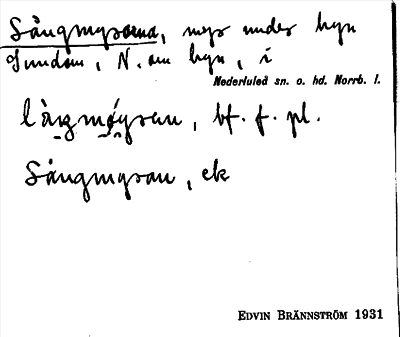 Långmyrorna, myr under byn
Sundom, N. om byn, i
Nederluleå sn. o. hd. Norrb. l.
, bf. f. pl.
Långmyran, ek
EDVIN BRÄNNSTRÖM 1931